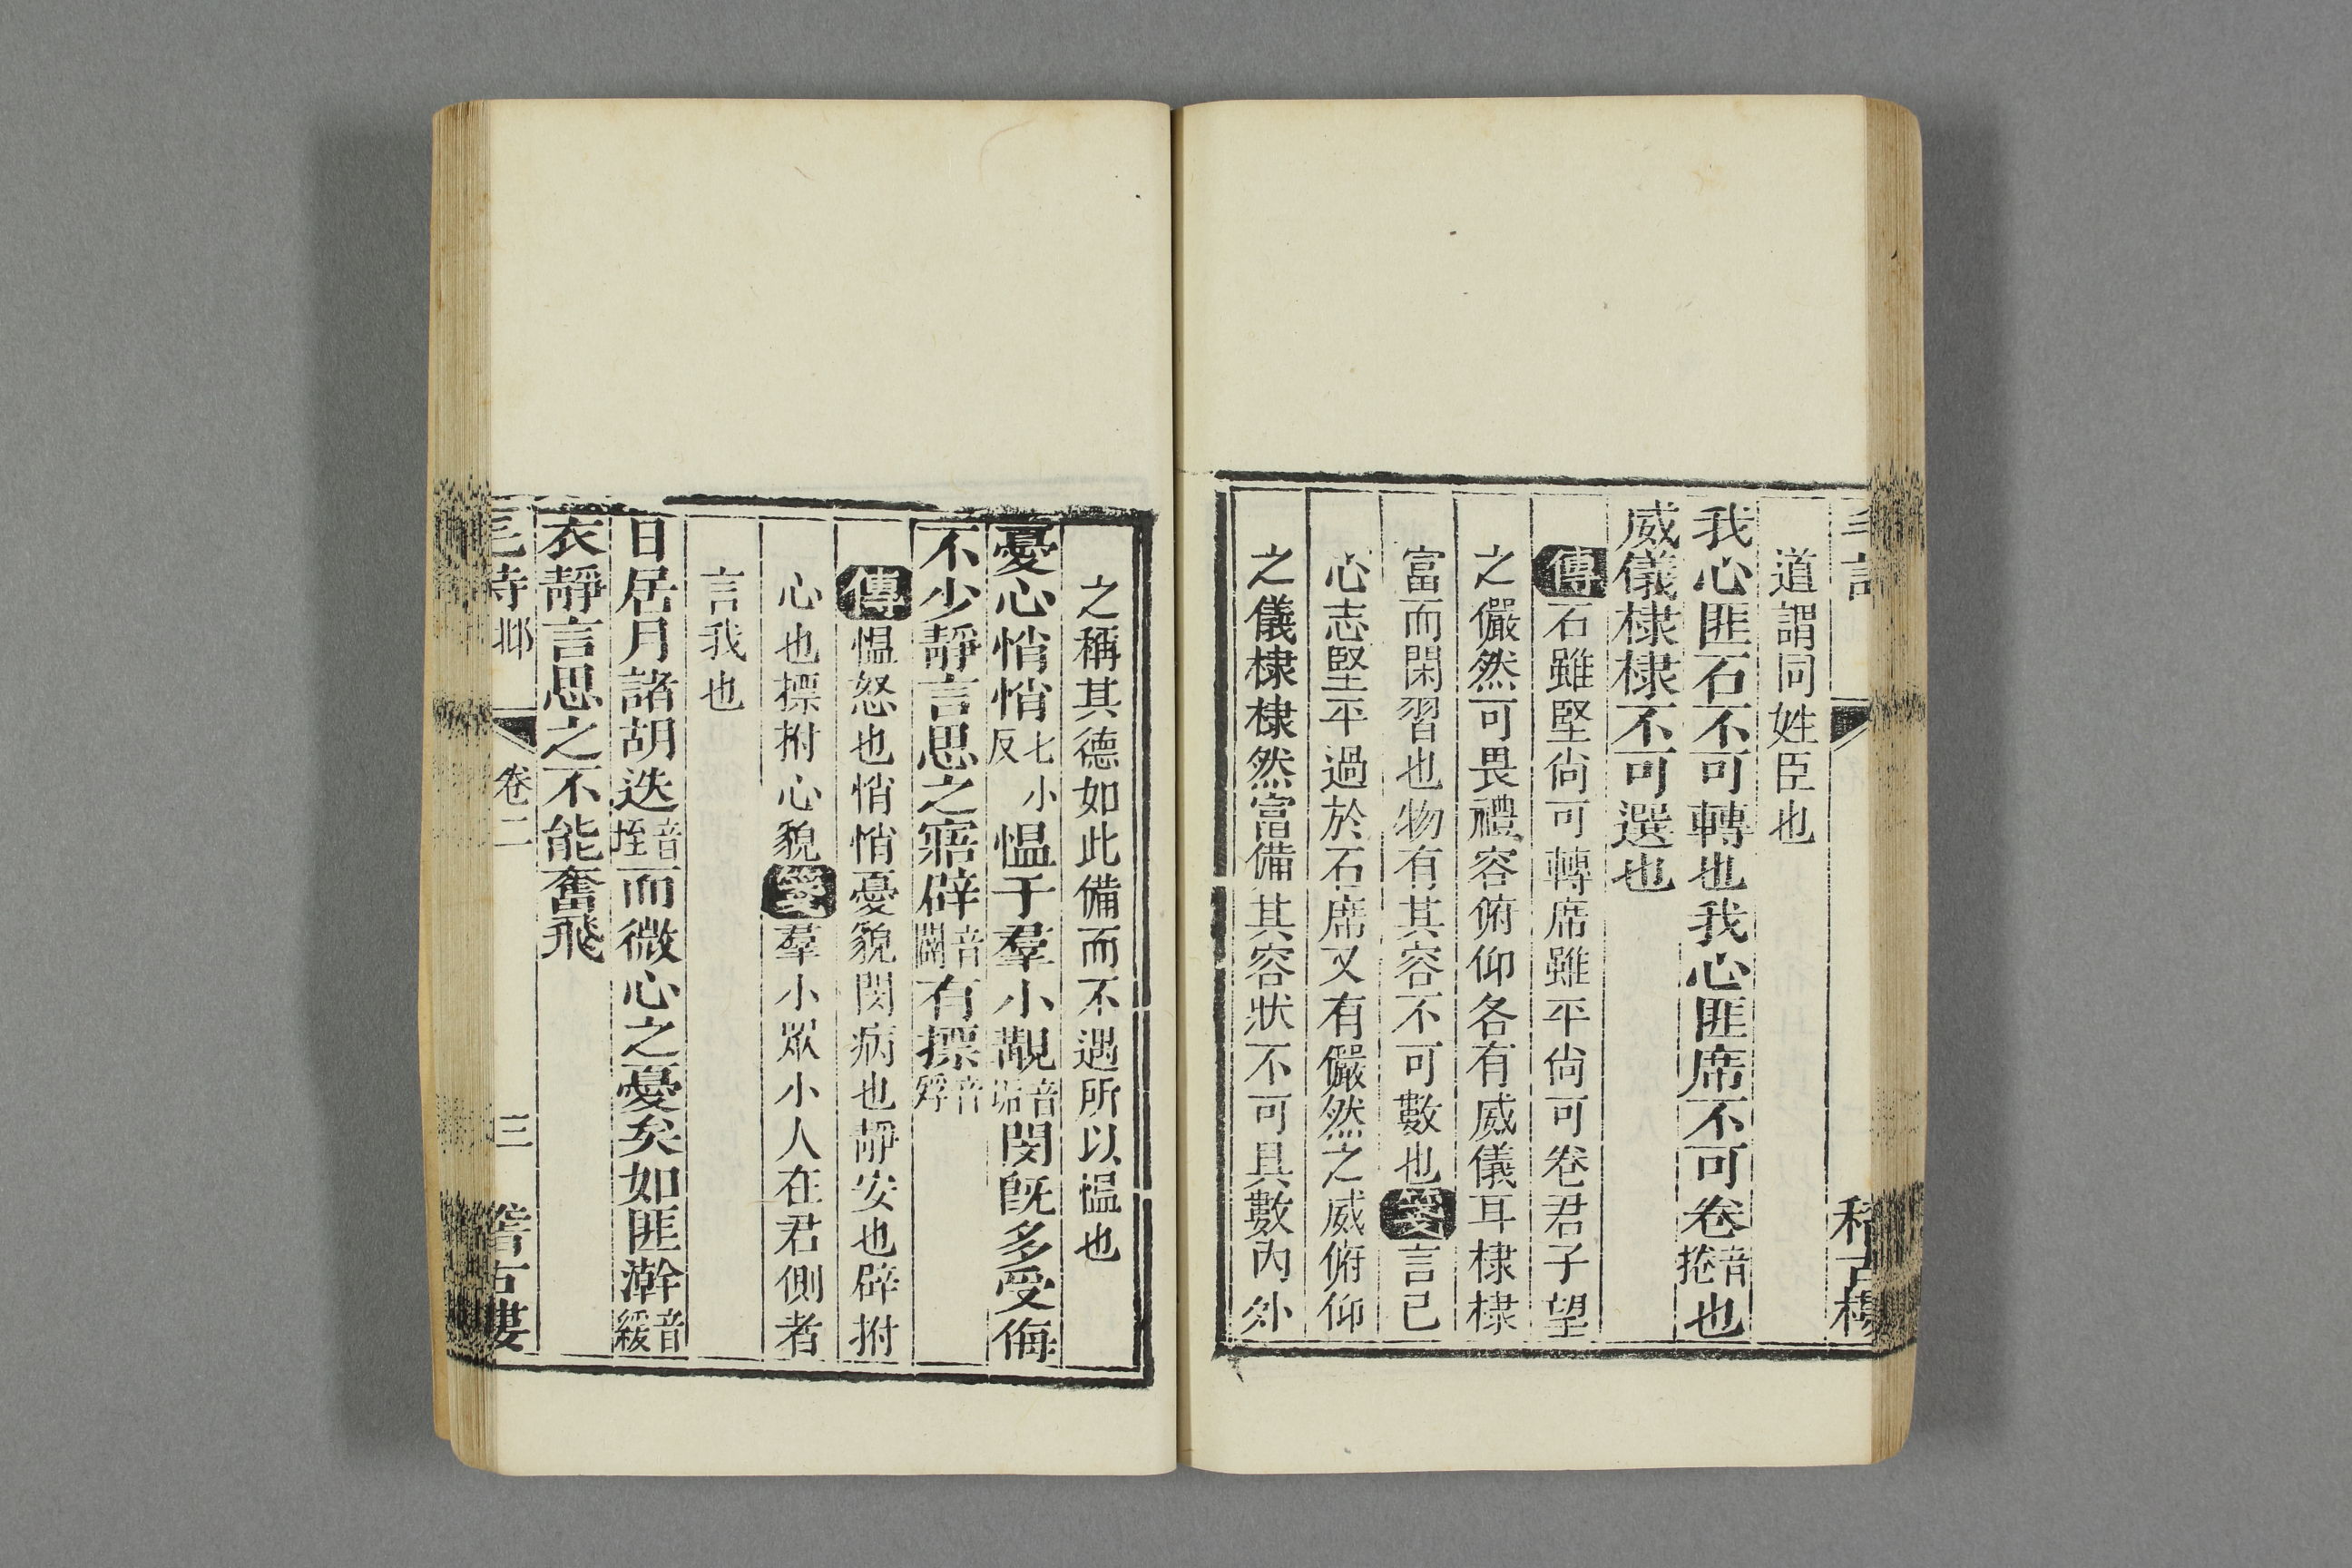 道謂同姓臣也
我心匪石不可轉也我心匪席不可卷音捲也
威儀棣棣不可選也
傳石雖堅尙可轉席雖平尙可卷君子望
之儼然可畏禮容俯仰各有威儀耳棣棣
富而閑習也物有其容不可數也箋言已
心志堅平過於石席又有儼然之威俯仰
之儀棣棣然富備其容狀不可具數內外
之稱其德如此備而不遇所以愠也
憂心悄悄七小反愠于羣小覯音垢閔旣多受侮
不少靜言思之寤辟音闢有摽音殍
傳愠怒也悄悄憂貌閔病也靜安也辟拊
心也摽拊心貌箋羣小眾小人在君側者
言我也
日居月諸胡迭音垤而微心之憂矣如匪澣音緩
衣靜言思之不能奮飛
毛詩邶 卷二 三 稽古樓